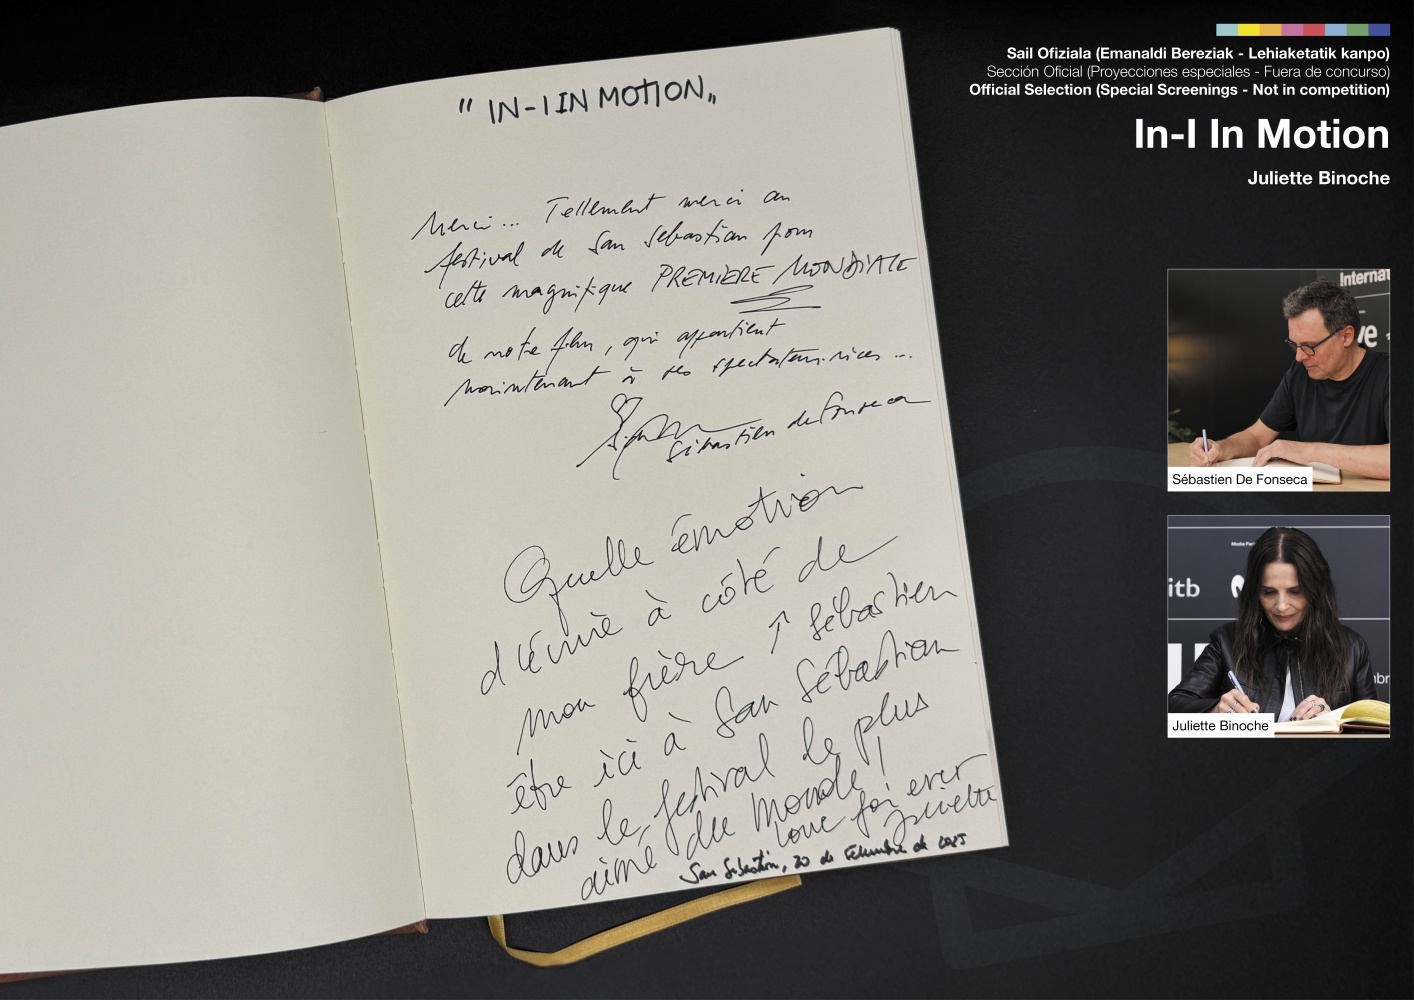 " IN-I IN MOTION "
Merci... Tellement merci au
festival de San Sebastian pour
cette magnifique PREMIERE MONDIALE
de notre film, qui appartient
maintenant à ses spectateur.rices ...
Sébastien de Fonseca
Quelle émotion
d'écrire à côté de
mon frère ↑ Sébastien
être ici à San Sébastian
dans le festival le plus
aimé du Monde !
love for ever
Juliette
San Sebastián, 20 de setiembre de 2025
Sail Ofiziala (Emanaldi Bereziak - Lehiaketatik kanpo)
Sección Oficial (Proyecciones especiales - Fuera de concurso)
Official Selection (Special Screenings - Not in competition)
In-I In Motion
Juliette Binoche
Internat
Sébastien De Fonseca
itb
Juliette Binoche